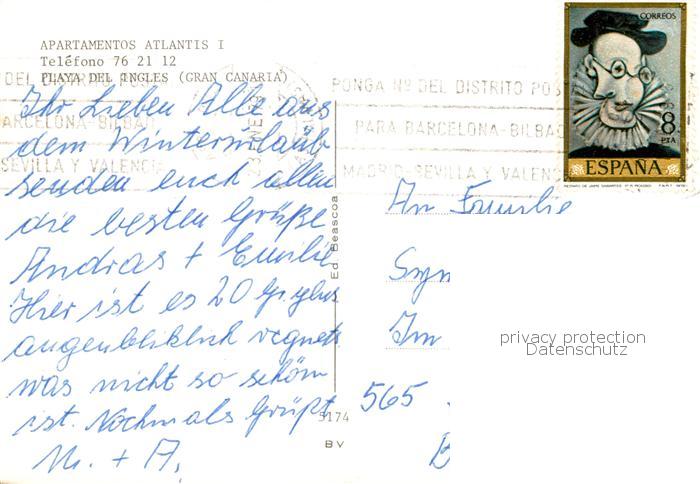 APARTAMENTOS ATLANTIS I
Teléfono 76 21 12
PLAYA DEL INGLES (GRAN CANARIA)
Ihr Lieben Alle aus
dem Winterurlaub
senden euch allen
die besten Grüße
Andras + Emilie
Hier ist es 20 Gr. plus
augenbliklich regnets
was nicht so schön
ist. Nochmals Grüßt
M. + A.
Ed. Beascoa
5174
BV
PONGA Nº DEL DISTRITO POSTA
PARA BARCELONA-BILBAO
MADRID-SEVILLA Y VALENC
DEL DISTRITO POS
ARCELONA-BILBAO
SEVILLA Y VALENCI
CORREOS
8
PTA
ESPAÑA
RETRATO DE JAIME SABARTES P.R. PICASSO F.N.M.T.
An Familie
Im
565
privacy protection
Datenschutz